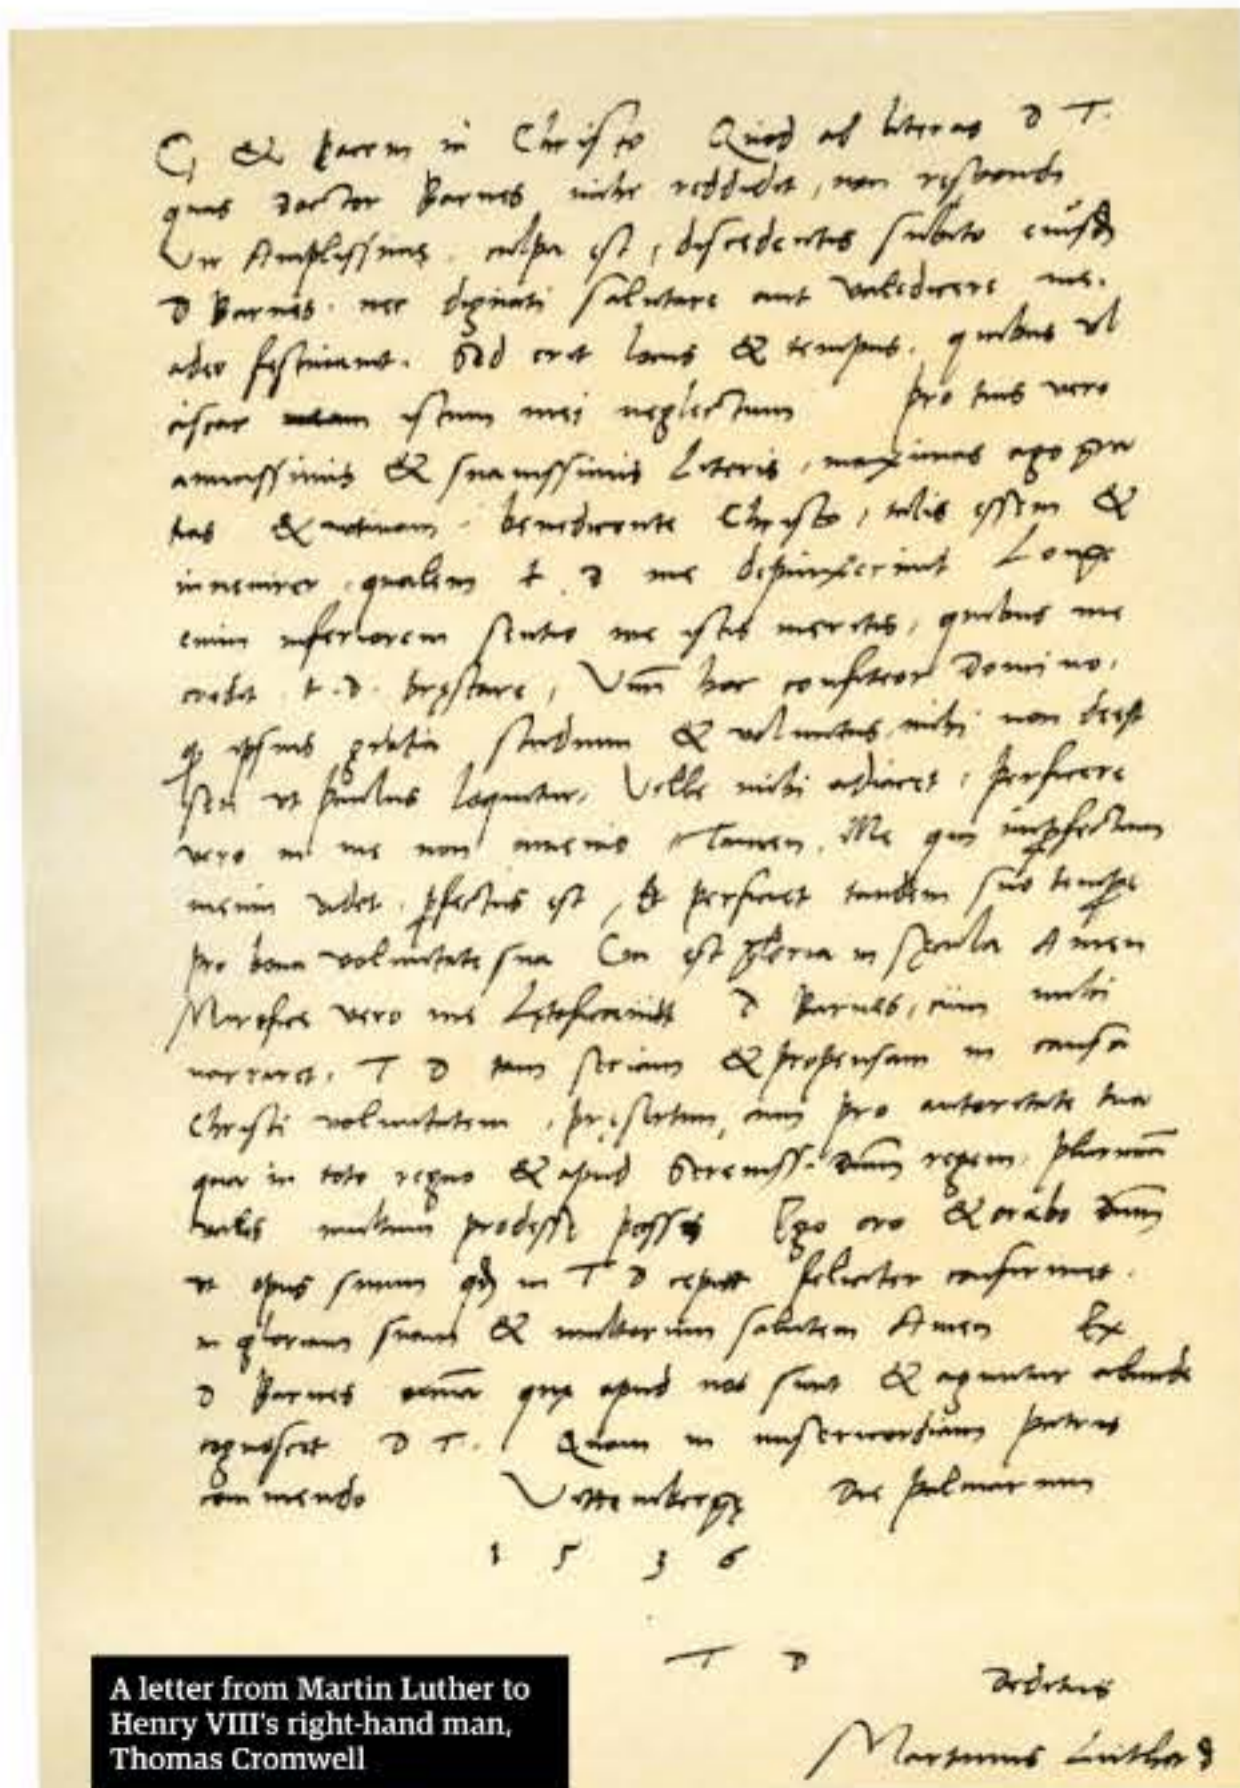 G & pacem in Christo Quod ad literas D T.
quas doctor Barnes mihi reddidit, non respondi
Vir Amplissime. culpa est, discedentis subito eiusd
D Barnes. nec dignati salutare aut valedicere me.
adeo festinant. Sed erit locus & tempus. quibus ul
ciscar istum mei neglectum Pro tuis vero
amicissimis & suavissimis literis, maximas ago gra
tias & utinam. benedicente Christo, talis essem &
invenirer. qualem t. d me depinxerint Longe
enim inferiorem sentio me istis meritis, quibus me
credit. t. d. pręstare, Unu hoc confiteor Domino,
q ipsius gratia studium & voluntas mihi non deest
sed ut Paulus loquitur, Velle mihi adiacet, perficere
vero in me non invenio Tamen. Me qui imperfectum
meum videt. pfectus est, & perficiet tandem suo tempe
pro bona voluntate sua Cui est gloria in sęcula Amen
Mirifice vero me lętificavit D Barnes, cum mihi
narraret, T D tam seriam & propensam in causa
Christi voluntatem, pręsertim, cum pro autoritate tua
qua in toto regno & apud Sereniss. dnm regem. plurimu
vales multum prodesse possis Ego oro & orabo dnm
ut opus suum qd in T D cepit feliciter confirmet.
in gloriam suam & multorum salutem Amen Ex
D Barnes omnia quę apud nos sunt & aguntur abunde
cognoscet D T. Quam in misericordiam patris
commendo Vittembergę Die palmarum
1 5 3 6
T D
deditus
Martinus Luther d
A letter from Martin Luther to
Henry VIII's right-hand man,
Thomas Cromwell